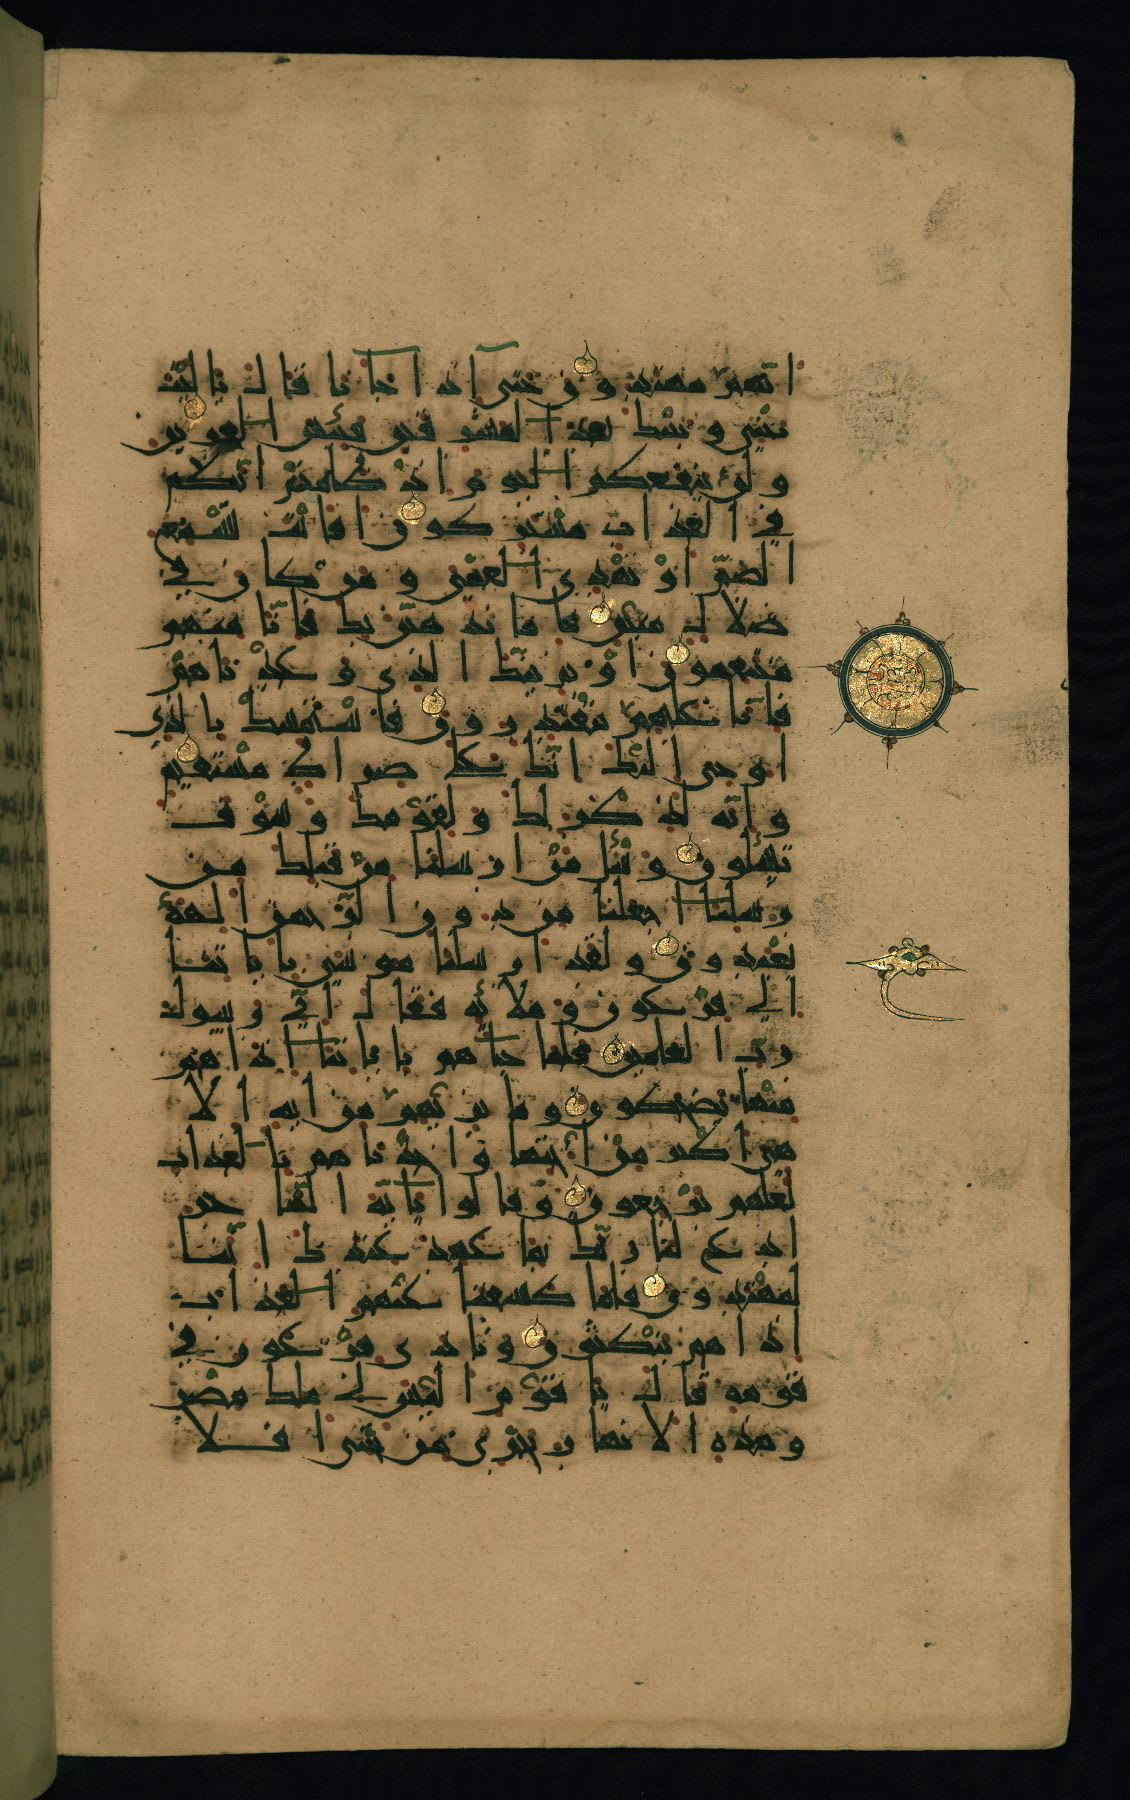 انهم مهتدون حتى اذا جانا قال ياليت
بيني وبينك بعد المشرقين فبئس القرين
ولن ينفعكم اليوم اذ ظلمتم انكم
في العذاب مشتركون افانت تسمع
الصم او تهدي العمي ومن كان في
ضلال مبين فاما نذهبن بك فانا منهم
منتقمون او نرينك الذي وعدناهم
فانا عليهم مقتدرون فاستمسك بالذي
اوحي اليك انك على صراط مستقيم
وانه لذكر لك ولقومك وسوف
تسئلون وسئل من ارسلنا من قبلك من
رسلنا اجعلنا من دون الرحمن الهة
يعبدون ولقد ارسلنا موسى باياتنا
الى فرعون وملائه فقال اني رسول
رب العالمين فلما جاهم باياتنا اذا هم
منها يضحكون وما نريهم من اية الا
هي اكبر من اختها واخذناهم بالعذاب
لعلهم يرجعون وقالوا يا ايه الساحر
ادع لنا ربك بما عهد عندك اننا
لمهتدون فلما كشفنا عنهم العذاب
اذا هم ينكثون ونادى فرعون في
قومه قال يا قوم اليس لي ملك مصر
وهذه الانهار تجري من تحتي افلا